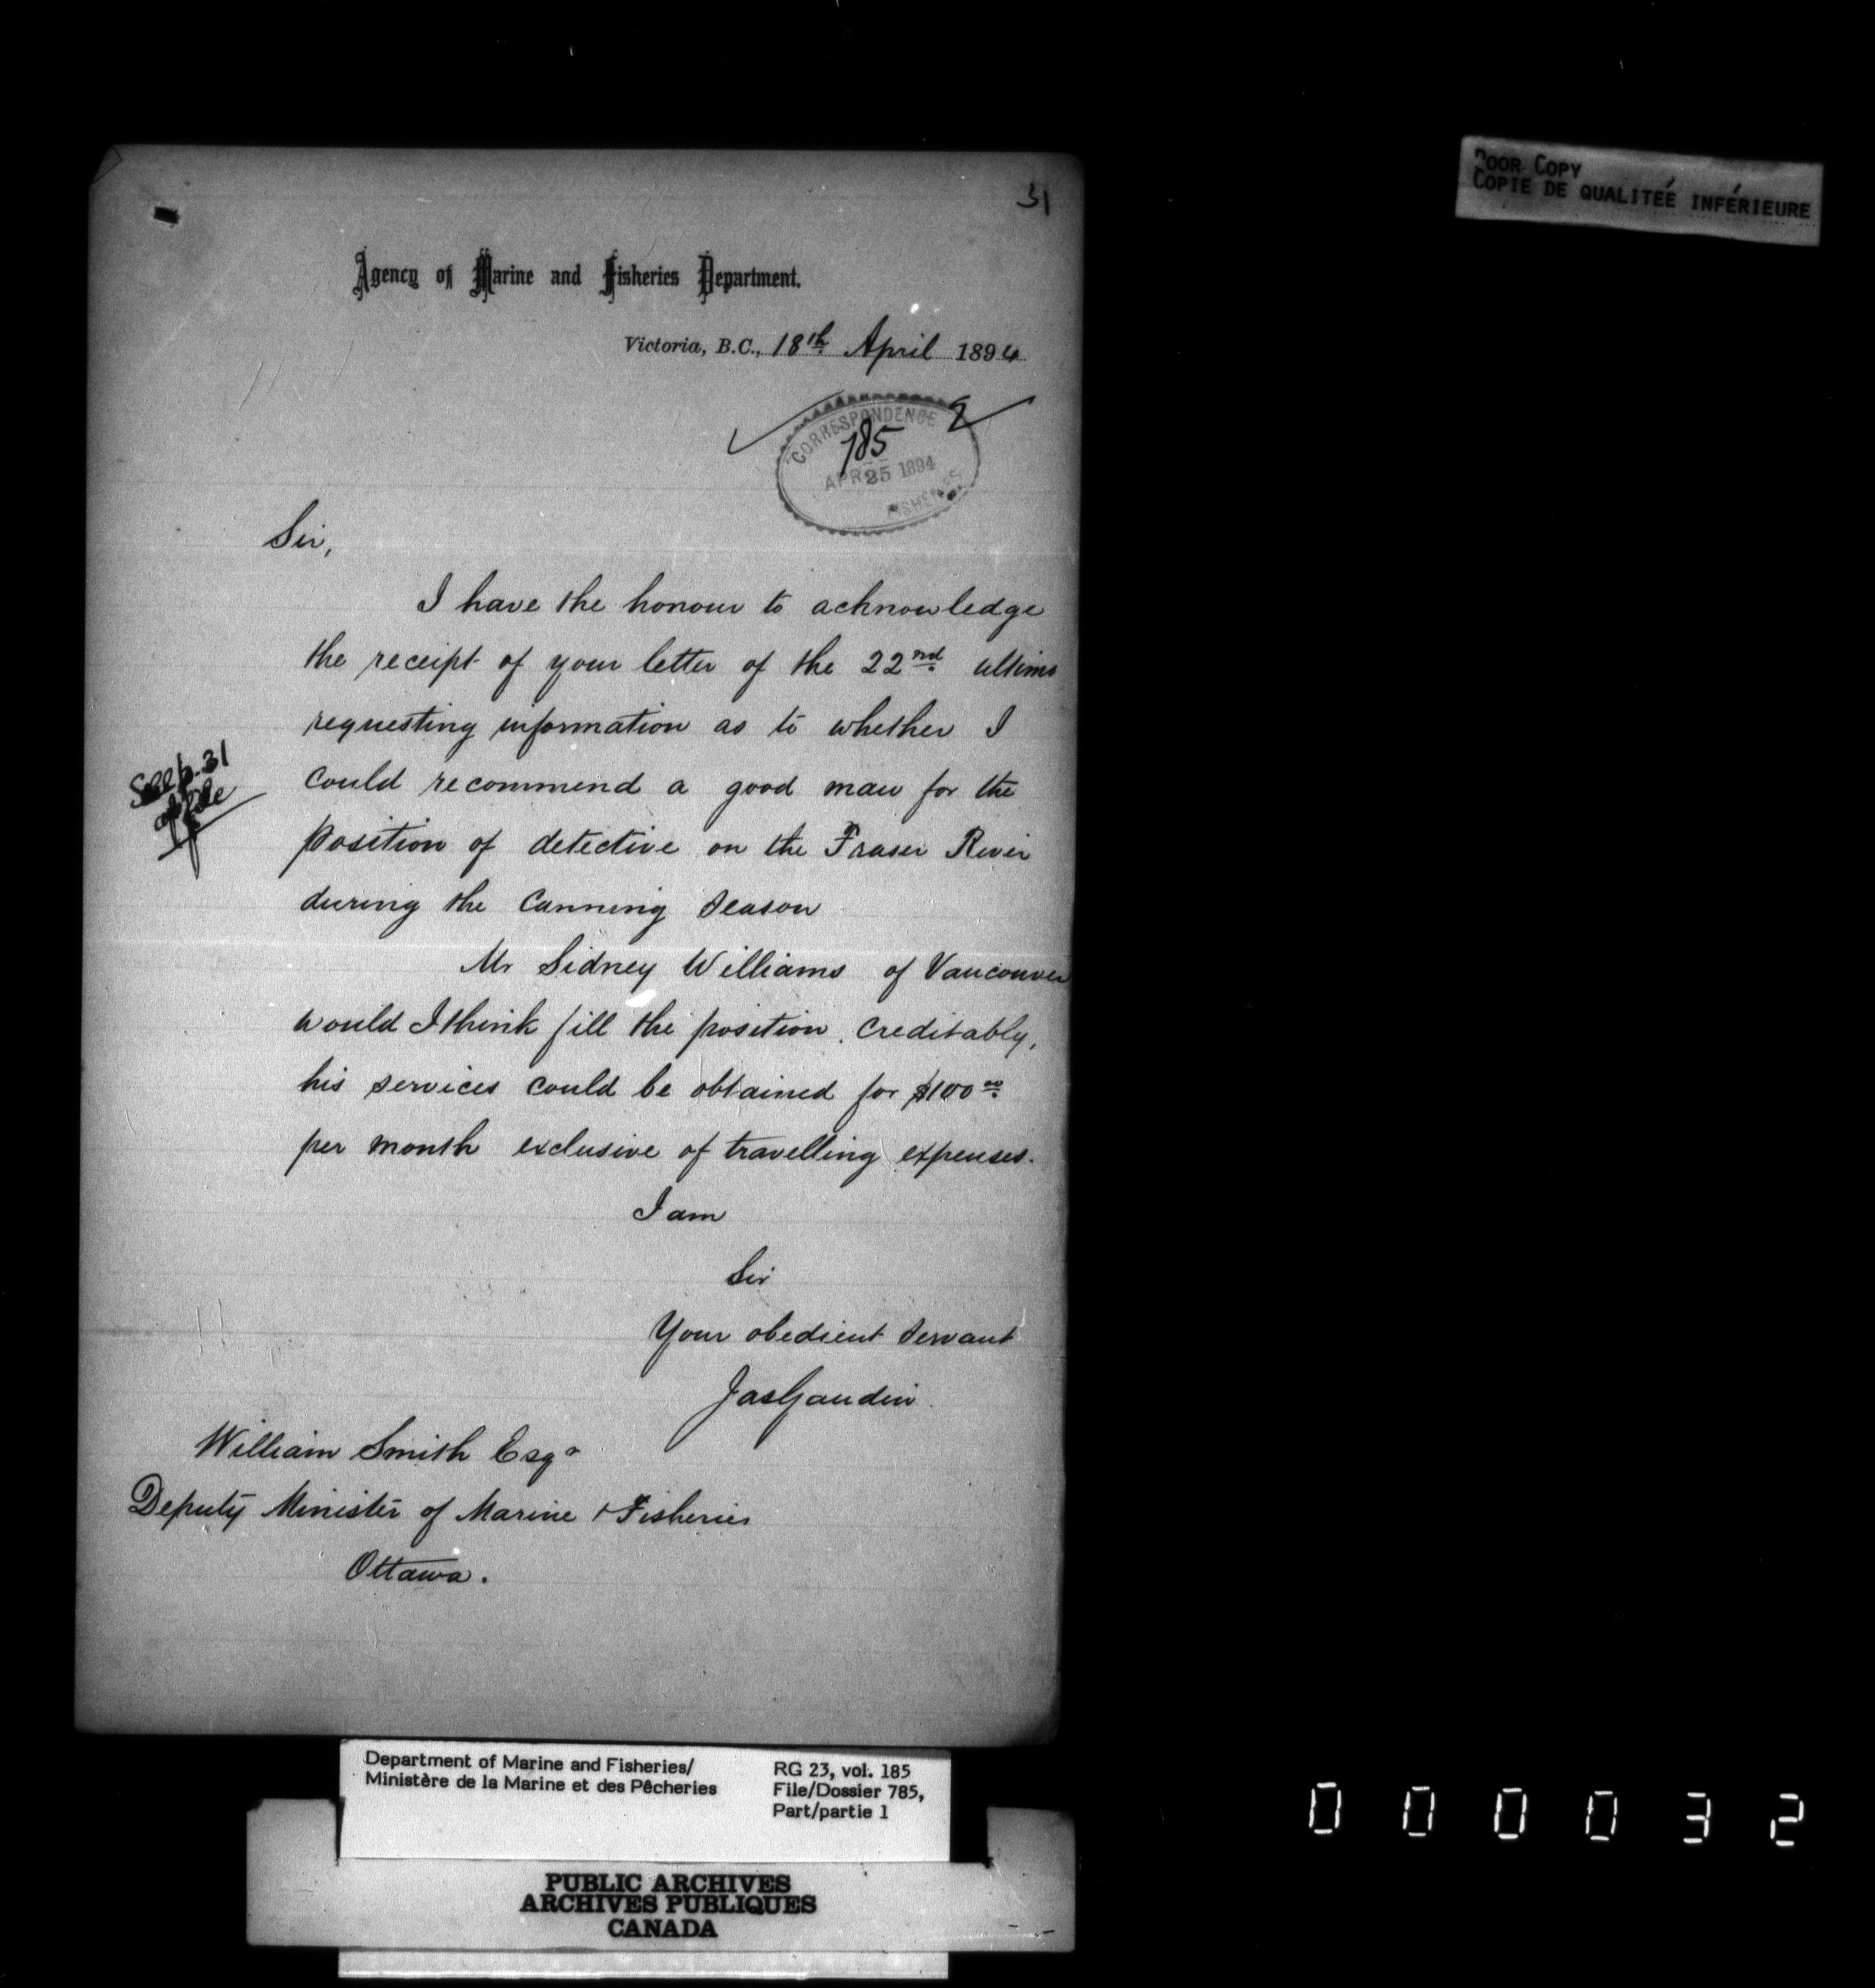 POOR COPY
COPIE DE QUALITEÉ INFÉRIEURE
31
Agency of Marine and Fisheries Department.
Victoria, B.C., 18th April 1894
CORRESPONDENCE
785
APR 25 1894
FISHERIES
Sir,
I have the honour to acknowledge
the receipt of your letter of the 22nd ultimo
requesting information as to whether I
See p. 31
of file
could recommend a good man for the
position of detective on the Fraser River
during the canning season
Mr Sidney Williams of Vancouver
would I think fill the position creditably,
his services could be obtained for $100.00
per month exclusive of travelling expenses.
I am
Sir
Your obedient servant
Jas Gaudin
William Smith Esqr
Deputy Minister of Marine + Fisheries
Ottawa.
Department of Marine and Fisheries/
Ministère de la Marine et des Pêcheries
RG 23, vol. 185
File/Dossier 785,
Part/partie 1
PUBLIC ARCHIVES
ARCHIVES PUBLIQUES
CANADA
000032